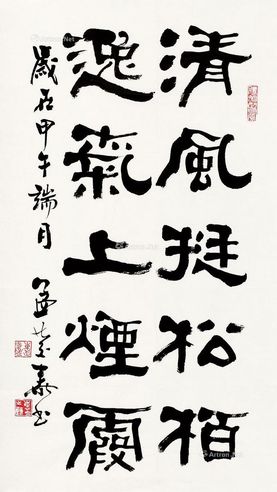 清風挺松柏
逸氣上煙霞
歲在甲午端月